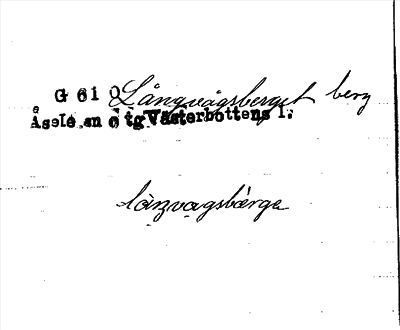 G 61 Q Långvågsberget berg
Åsele sn o tg Västerbottens l.
låŋvagsbärge